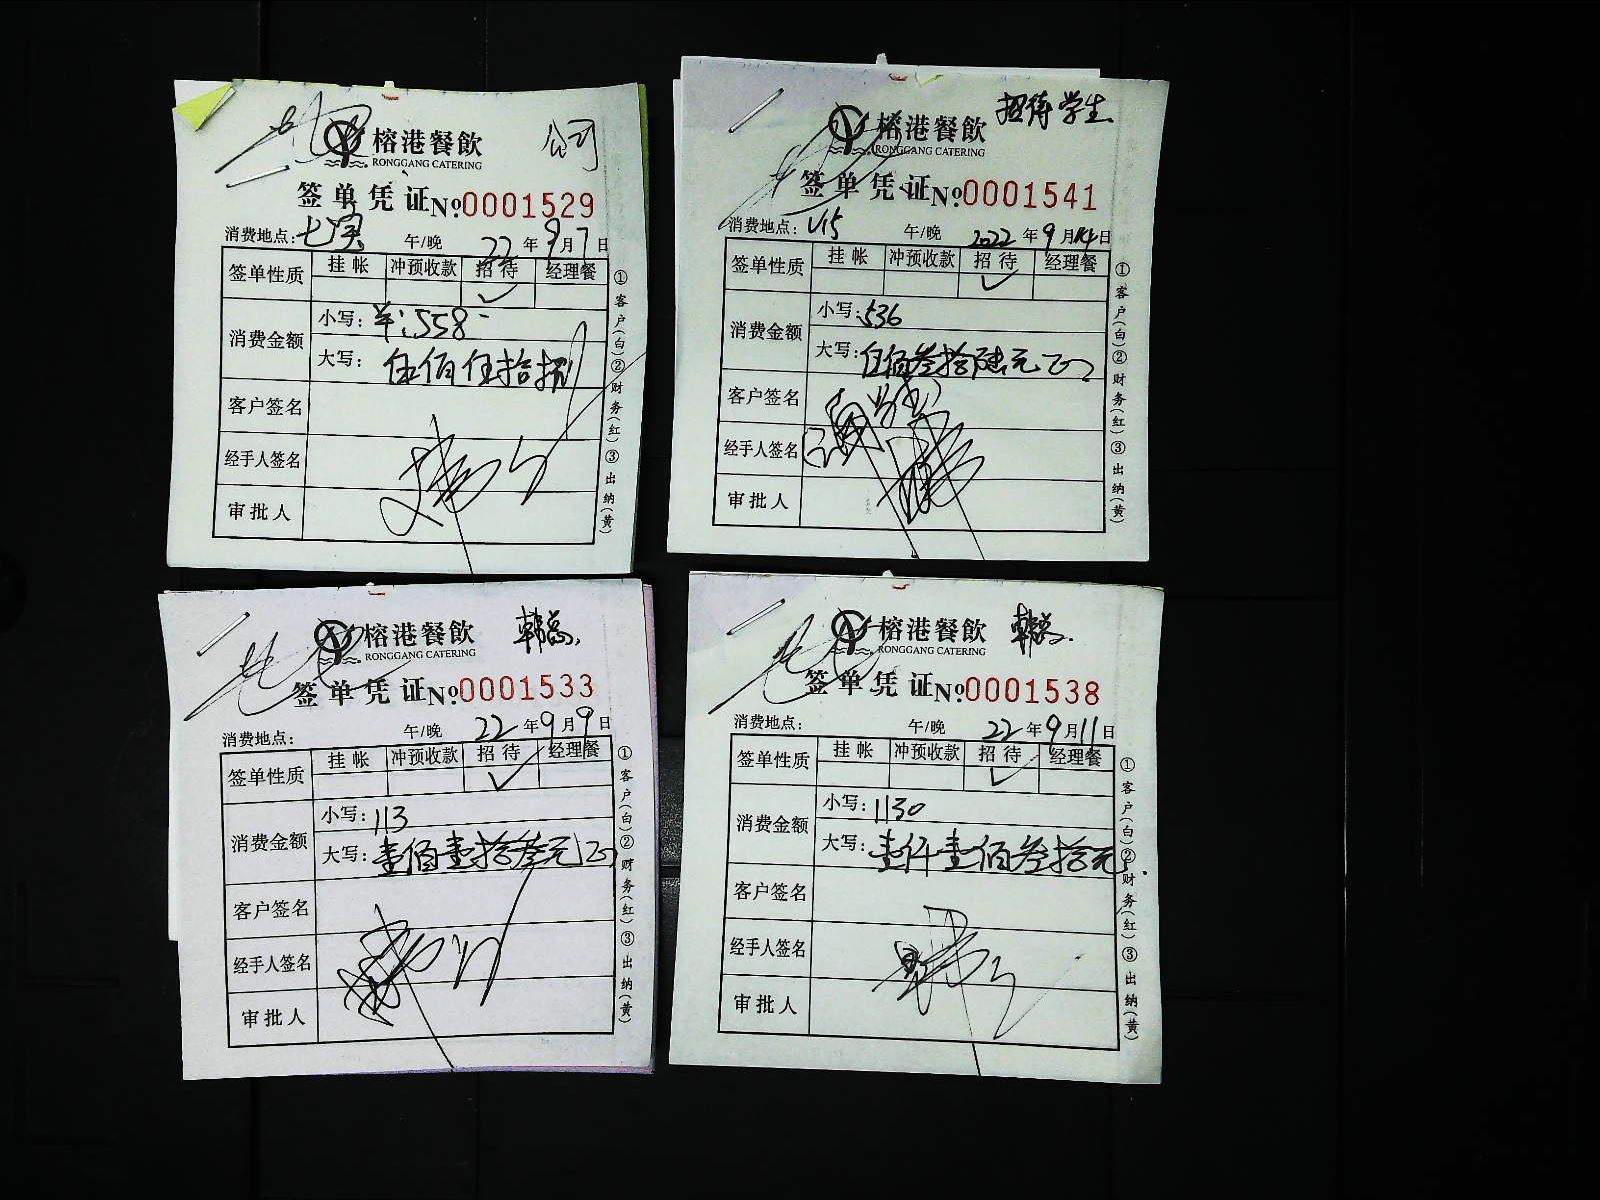 榕港餐飲
公司
RONGGANG CATERING
签单凭证 №0001529
消费地点: 七宝 午/晚 22年9月7日
签单性质 挂帐 冲预收款 招待 经理餐
✓
消费金额 小写: ¥:558-
大写: 伍佰伍拾捌
客户签名
经手人签名
审批人
①客户(白)②财务(红)③出纳(黄)
招待学生
榕港餐飲
RONGGANG CATERING
签单凭证 №0001541
消费地点: V15 午/晚 2022年9月14日
签单性质 挂帐 冲预收款 招待 经理餐
✓
消费金额 小写: 536
大写: 伍佰叁拾陆元正
客户签名
经手人签名
审批人
①客户(白)②财务(红)③出纳(黄)
榕港餐飲 韩总
RONGGANG CATERING
签单凭证 №0001533
消费地点: 午/晚 22年9月9日
签单性质 挂帐 冲预收款 招待 经理餐
✓
消费金额 小写: 113
大写: 壹佰壹拾叁元正
客户签名
经手人签名
审批人
①客户(白)②财务(红)③出纳(黄)
榕港餐飲 韩总.
RONGGANG CATERING
签单凭证 №0001538
消费地点: 午/晚 22年9月11日
签单性质 挂帐 冲预收款 招待 经理餐
✓
消费金额 小写: 1130
大写: 壹仟壹佰叁拾元.
客户签名
经手人签名
审批人
①客户(白)②财务(红)③出纳(黄)